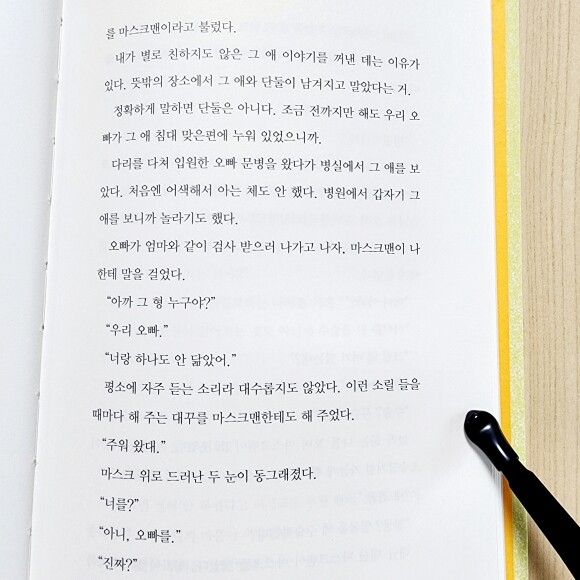 를 마스크맨이라고 불렀다.
내가 별로 친하지도 않은 그 애 이야기를 꺼낸 데는 이유가
있다. 뜻밖의 장소에서 그 애와 단둘이 남겨지고 말았다는 거.
정확하게 말하면 단둘은 아니다. 조금 전까지만 해도 우리 오
빠가 그 애 침대 맞은편에 누워 있었으니까.
다리를 다쳐 입원한 오빠 문병을 왔다가 병실에서 그 애를 보
았다. 처음엔 어색해서 아는 체도 안 했다. 병원에서 갑자기 그
애를 보니까 놀라기도 했다.
오빠가 엄마와 같이 검사 받으러 나가고 나자, 마스크맨이 나
한테 말을 걸었다.
“아까 그 형 누구야?”
“우리 오빠.”
“너랑 하나도 안 닮았어.”
평소에 자주 듣는 소리라 대수롭지도 않았다. 이런 소릴 들을
때마다 해 주는 대꾸를 마스크맨한테도 해 주었다.
“주워 왔대.”
마스크 위로 드러난 두 눈이 동그래졌다.
“너를?”
“아니, 오빠를.”
“진짜?”